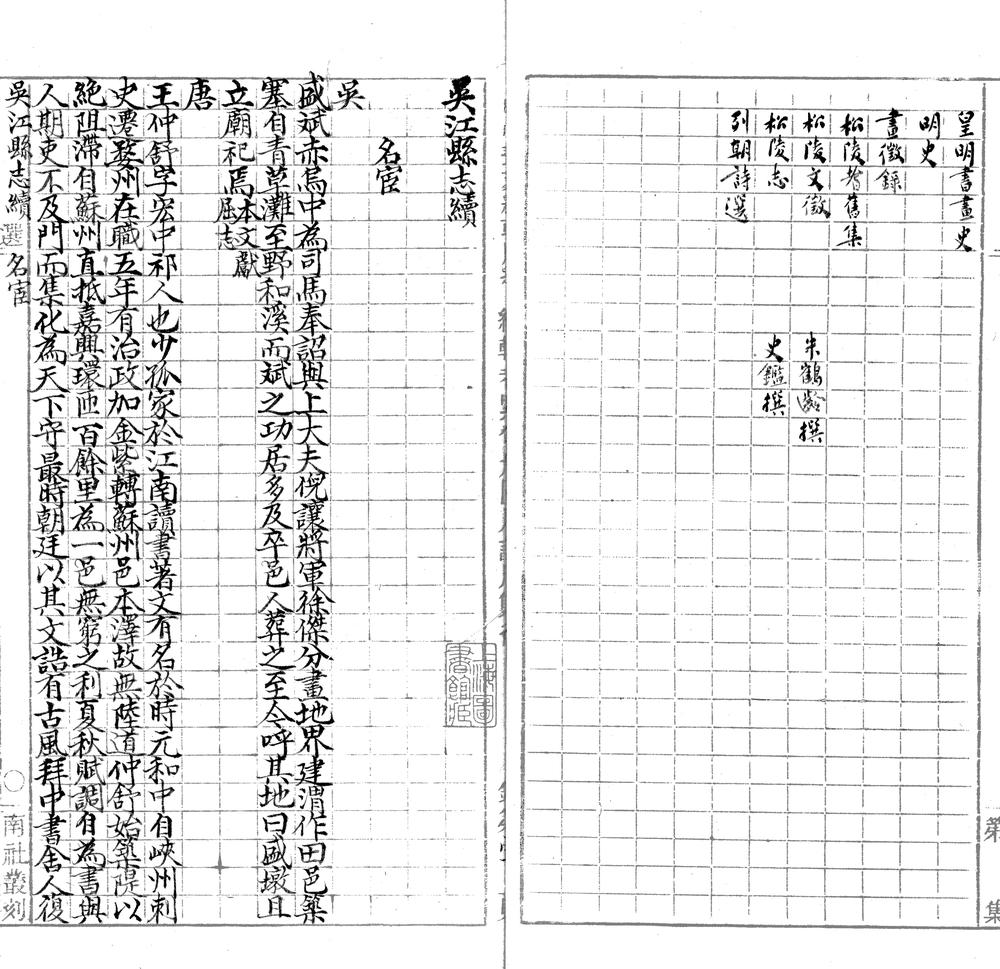 皇明書畫史
明史
畫徵錄
松陵耆舊集
松陵文徵 朱鶴齡撰
松陵志 史鑑撰
列朝詩選
第
集
吳江縣志續
名宦
吳
盛斌赤烏中為司馬奉詔與上大夫倪讓將軍徐傑分畫地界建渭作田邑築
塞自青草灘至野和溪而斌之功居多及卒邑人葬之至今呼其地曰盛墩且
立廟祀焉本文獻屈志
唐
王仲舒字宏中祁人也少孤家於江南讀書著文有名於時元和中自峽州刺
史遷婺州在職五年有治政加金紫轉蘇州邑本澤故無陸道仲舒始築隄以
絕阻滯自蘇州直抵嘉興環匝百餘里為一邑無窮之利夏秋賦調自為書與
人期吏不及門而集化為天下守最時朝廷以其文誥有古風拜中書舍人復
吳江縣志續 選 名宦
南社叢刻
上海圖書館藏